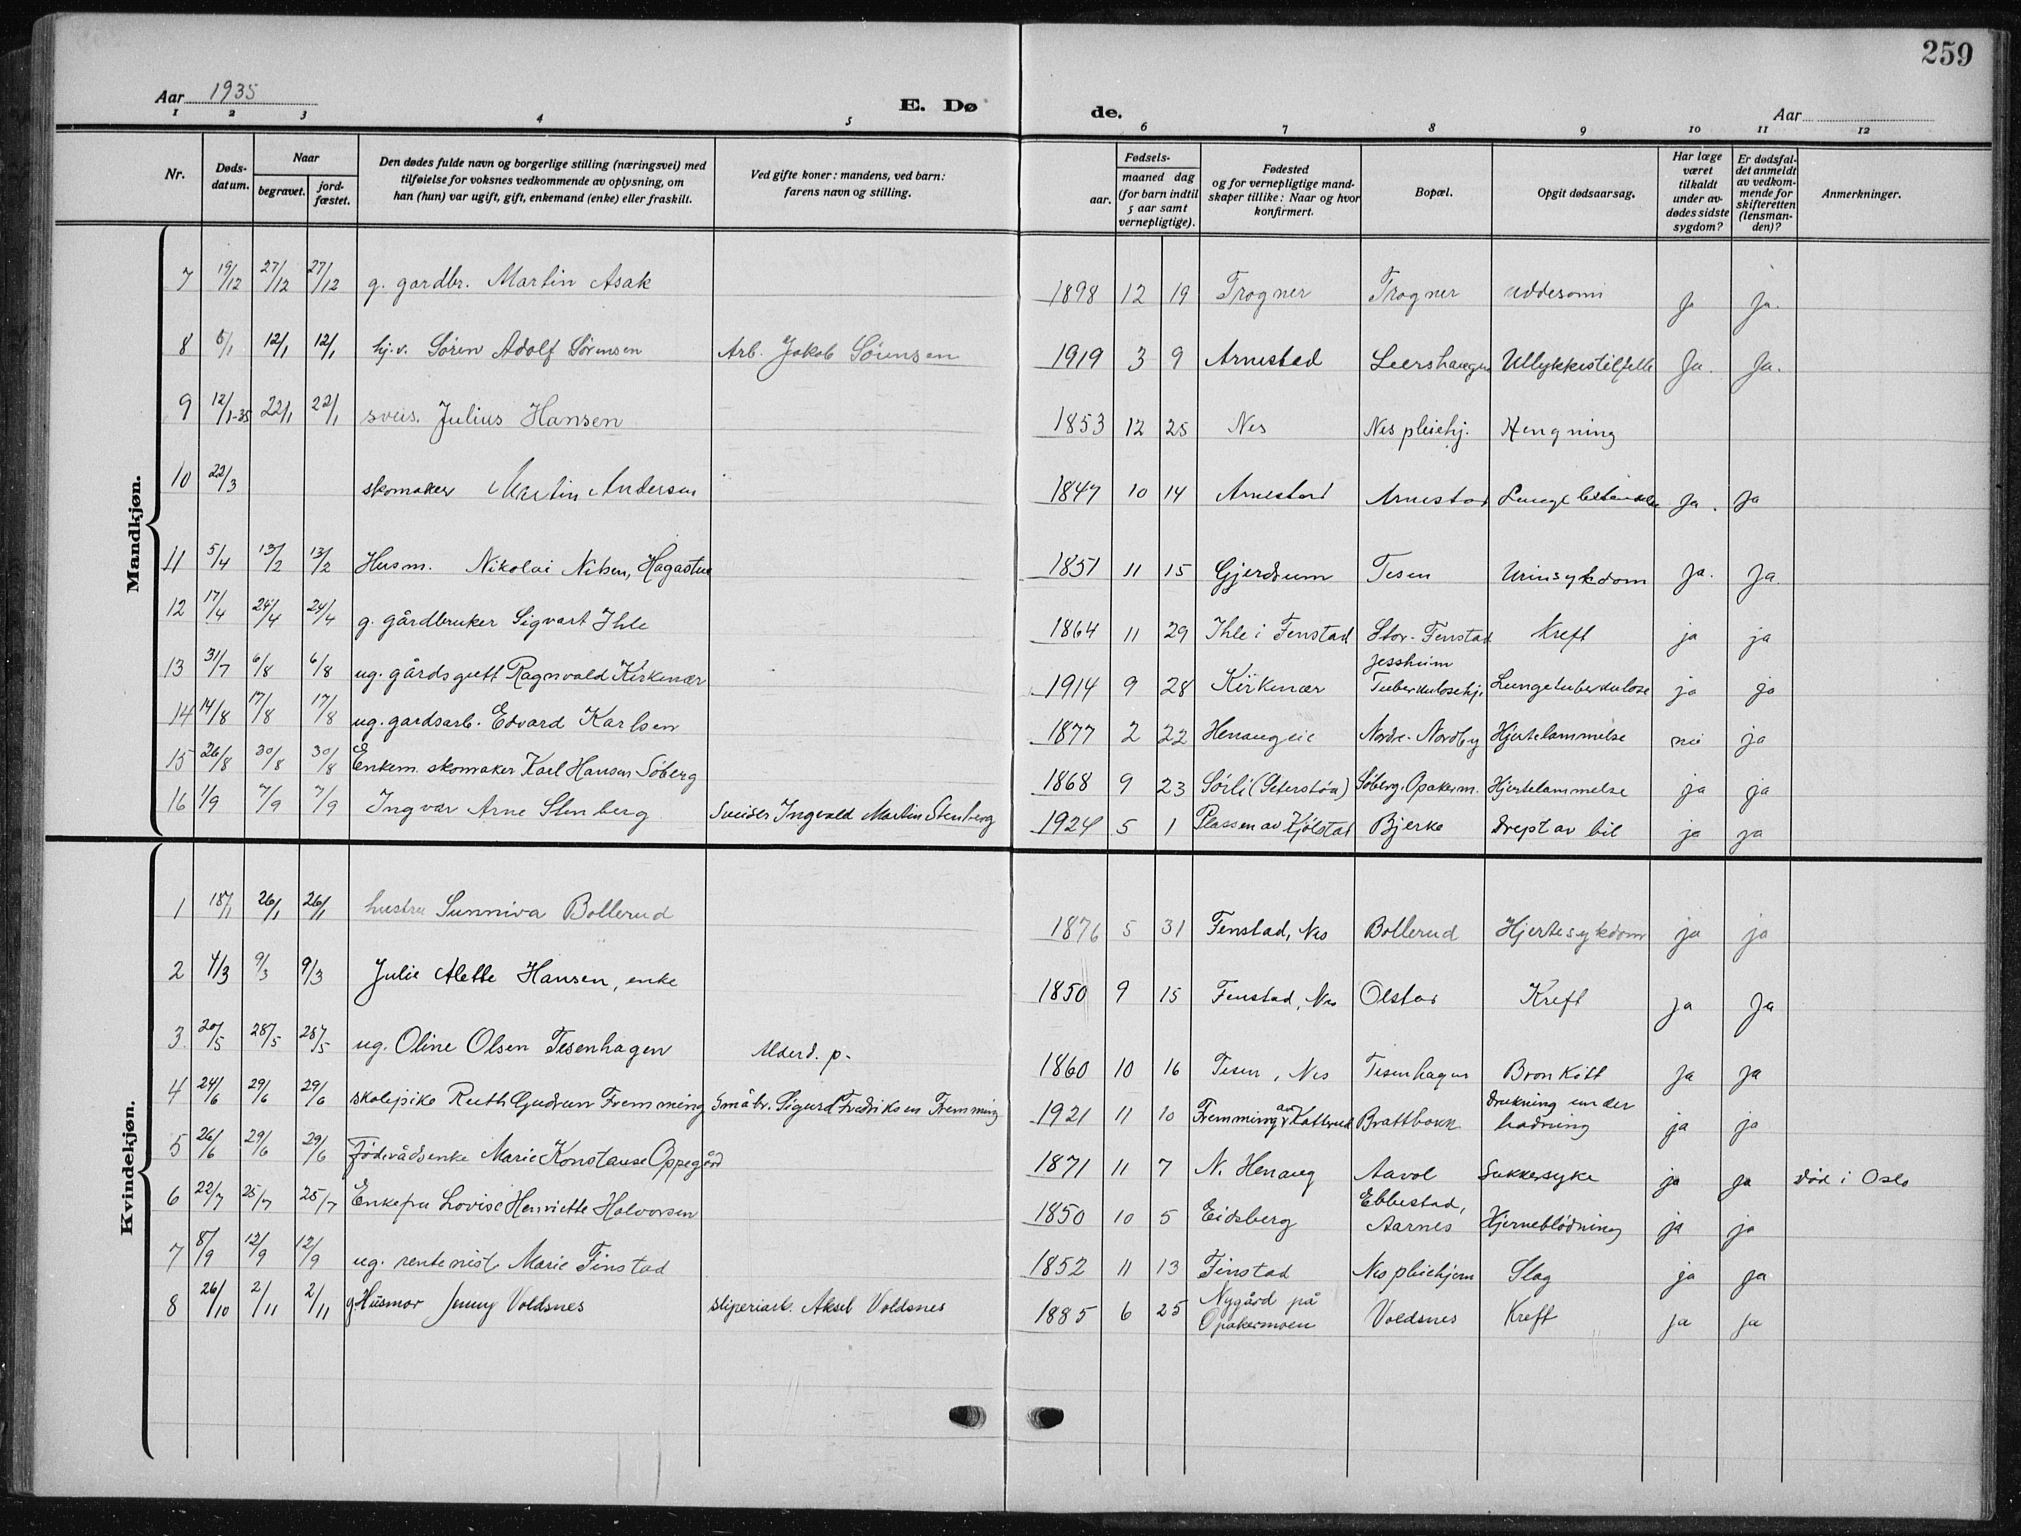 259
Aar 1935
E. Dø
de.
Aar
1 2 3 4 5 6 7 8 9 10 11 12
Nr.
Døds-
datum.
Naar
begravet.
jord-
fæstet.
Den dødes fulde navn og borgerlige stilling (næringsvei) med
tilføielse for voksnes vedkommende av oplysning, om
han (hun) var ugift, gift, enkemand (enke) eller fraskilt.
Ved gifte koner: mandens, ved barn:
farens navn og stilling.
Fødsels-
aar.
maaned dag
(for barn indtil
5 aar samt
vernepligtige).
Fødested
og for vernepligtige mand-
skaper tillike: Naar og hvor
konfirmert.
Bopæl.
Opgit dødsaarsag.
Har læge
været
tilkaldt
under av-
dødes sidste
sygdom?
Er dødsfal-
det anmeldt
av vedkom-
mende for
skifteretten
(lensman-
den)?
Anmerkninger.
Mandkjøn.
7 19/12 27/12 27/12 g. gardbr. Martin Asak 1898 12 19 Trogner Trogner Ja ja.
8 5/1 12/1 12/1 hj.v. Sören Adolf Sörensen Arb. Jakob Sörensen 1919 3 9 Arnestad Leershaugen Ullykkestilfelle Ja. Ja.
9 12/1-35 22/1 22/1 sveis. Julius Hansen 1853 12 25 Nes Nes pleiehj. Hengning
10 22/3 skomaker Martin Andersen 1847 10 14 Arnestad Arnestad Ja. Ja
11 5/4 13/2 13/2 Husm. Nikolai Nilsen, Hagastua 1851 11 15 Gjerdrum Tesen Urinsykdom Ja. Ja.
12 17/4 24/4 24/4 g. gårdbruker Sigvart Ihle 1864 11 29 Ihle i Fenstad Stor-Fenstad Kreft ja ja
13 31/7 6/8 6/8 ug. gårdsgutt Ragnvald Kirkenær 1914 9 28 Kirkenær Jessheim Tuberkulosehj. Lungetuberkulose ja ja
14 14/8 17/8 17/8 ug. gardsarb. Edvard Karlsen 1877 2 22 Henaugeie Nordre-Nordby Hjertelammelse nei ja
15 26/8 30/8 30/8 Enkem. skomaker Karl Hansen Söberg 1868 9 23 Sörli (Seterstöa) Söberg. Opakerm. Hjertelammelse ja ja
16 1/9 7/9 7/9 Ingvar Arne Stenberg Sveiser Ingvald Martin Stenberg 1924 5 1 Plassen av Kjölstad Bjerke drept av bil ja ja
Kvindekjøn.
1 18/1 26/1 26/1 hustru Sunniva Bollerud 1876 5 31 Fenstad, Nes Bollerud Hjertesykdom ja ja
2 4/3 9/3 9/3 Julie Alette Hansen, enke 1850 9 15 Fenstad, Nes Olstad Kreft ja Ja
3 20/5 28/5 28/5 ug. Oline Olsen Tesenhagen Alderd. p. 1860 10 16 Tesen, Nes Tesenhagen Bronkitt Ja Ja
4 24/6 29/6 29/6 skolepike Ruth Gudrun Fremming Småbr. Sigurd Fredriksen Fremming 1921 11 10 Fremming av Katterud Brattbakk Drukning under badning ja ja
5 26/6 29/6 29/6 Föderådsenke Marie Konstanse Oppegård 1871 11 7 N. Henaug Aavol Sukkersyke ja ja död i Oslo
6 22/7 25/7 25/7 Enkefru Lovise Henriette Halvorsen 1850 10 5 Eidsberg Ebbestad, Aarnes Hjerneblödning ja ja
7 8/9 12/9 12/9 ug. rentenist Marie Finstad 1852 11 13 Finstad Nes pleiehjem Slag ja ja
8 26/10 2/11 2/11 g Husmor Jenny Voldsnes sliperiarb. Aksel Voldsnes 1885 6 25 Nygård på Opakermoen Voldsnes Kreft ja ja